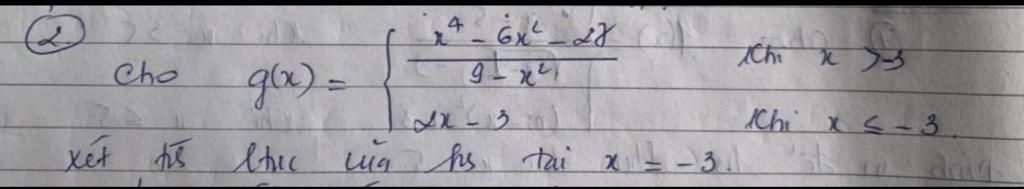 ② Cho g(x) = { (x⁴ - 6x² - 27)/(9 - x²) khi x > -3
2x - 3 khi x ≤ -3.
xét t/s ltục của hs tại x = -3.